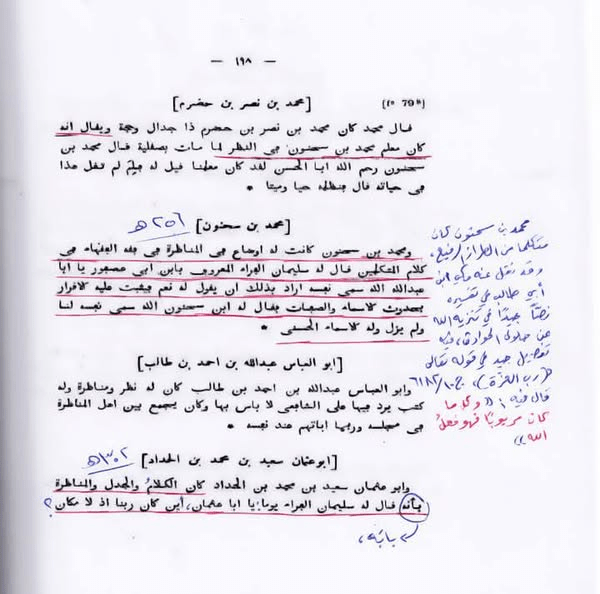 — ١٩٨ —
[محمد بن نصر بن حضرم]
(f° 79ᵃ)
قال محمد كان محمد بن نصر بن حضرم ذا جدال وحجة ويقال انه
كان معلم محمد بن سحنون في النظر لما مات بصقلية قال محمد بن
سحنون رحم الله ابا الحسن لقد كان معلمنا قيل له فلم لم تقل هذا
في حياته قال حيا وميتا *
[محمد بن سحنون]
٢٥٦ هـ
ومحمد بن سحنون كانت له اوضاع في المناظرة في فقه الفقهاء وفي
كلام المتكلمين قال له سليمان الفراء المعروف بابن ابي عصفور يا ابا
عبدالله الله سمى نفسه اراد بذلك ان يقول له نعم فيثبت عليه الاقرار
بحدوث الاسماء والصفات فقال له ابن سحنون الله سمى نفسه لنا
ولم يزل وله الاسماء الحسنى *
[ابو العباس عبدالله بن احمد بن طالب]
وابو العباس عبدالله بن احمد بن طالب كان له نظر ومناظرة وله
كتب يرد فيها على الشافعي لا باس بها وكان يجمع بين اهل المناظرة
في مجلسه وربما اباتهم عند نفسه *
[ابو عثمان سعيد بن محمد بن الحداد]
٣٠٢ هـ
وابو عثمان سعيد بن محمد بن الحداد كان الكلامُ والجدل والمناظرة
بأنه قال له سليمان الفراء يوما: يا ابا عثمان، أين كان ربنا اذ لا مكان؟
بابَه،
محمد بن سحنون كان
متكلما من الطراز الرفيع،
وقد نقل عنه مكي ابن
أبي طالب في تفسيره
نصًّا جيدًا في تنزيه الله
عن حلول الحوادث، فيه
تفصيل جيد في قوله تعالى
(رب العزة)، ج١٠/٦١٨٢
قال فيه: «وكل ما
كان مربوبًا فهو فعلُ
الله»